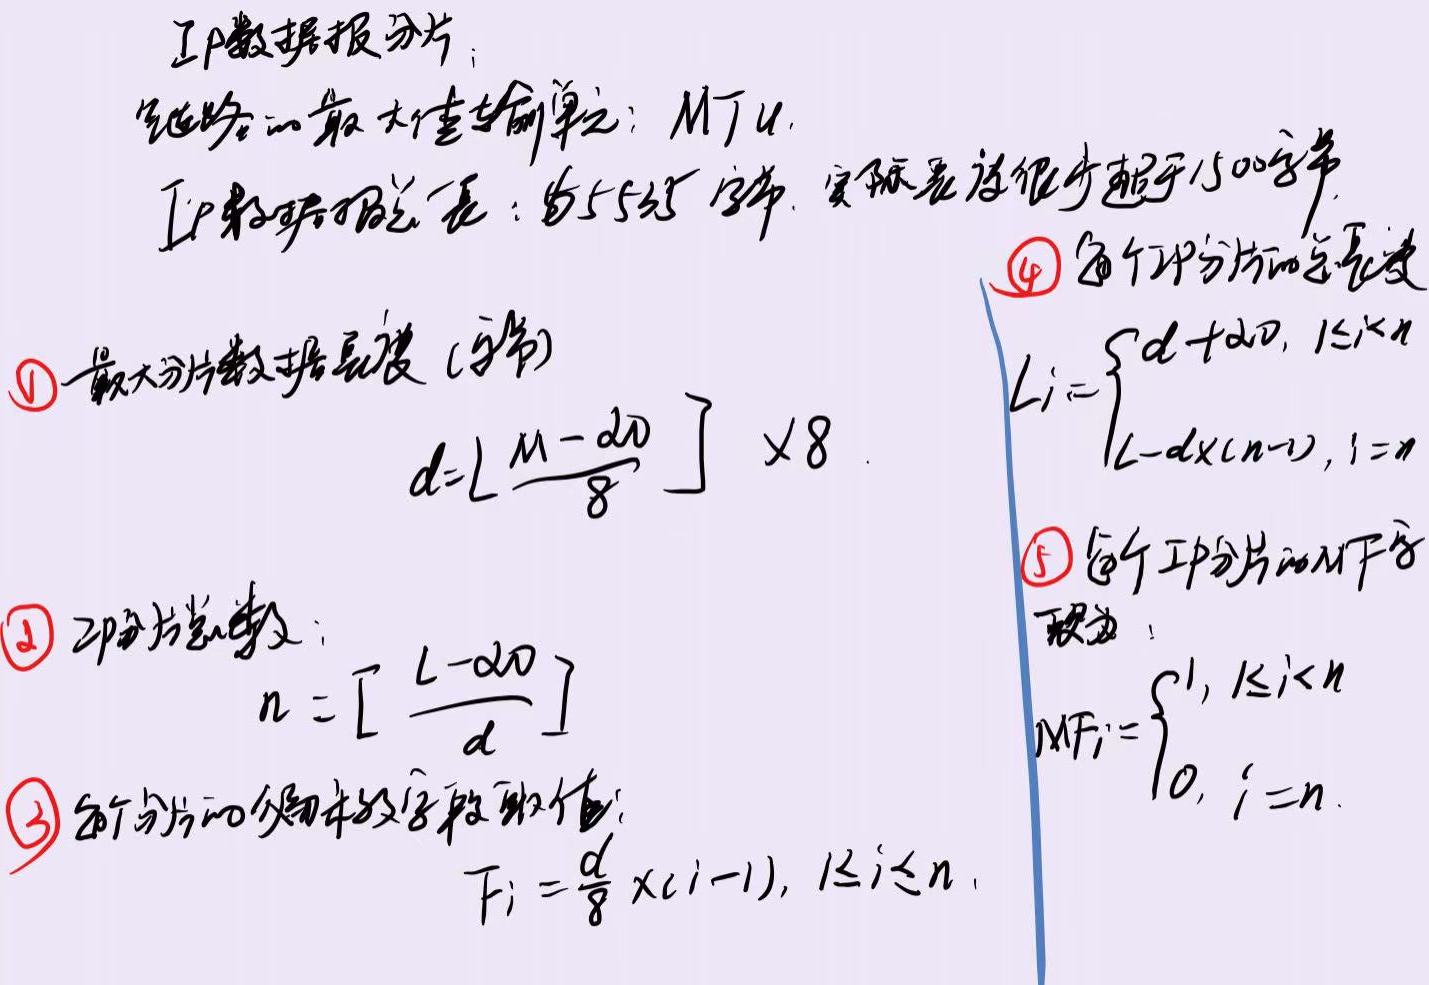 IP数据报分片:
链路的最大传输单元: MTU.
IP数据报总长: 65535字节. 实际长度很少超于1500字节.
① 最大分片数据长度(字节)
d=⌊(M-20)/8⌋ ×8.
② IP分片总数:
n = ⌈(L-20)/d⌉
③ 每个分片的偏移字段取值:
Fi = d/8 ×(i-1), 1≤i≤n.
④ 每个IP分片的总长度
Li = { d+20, 1≤i<n
L-d×(n-1), i=n
⑤ 每个IP分片的MF字
段为:
MFi = { 1, 1≤i<n
0, i=n.